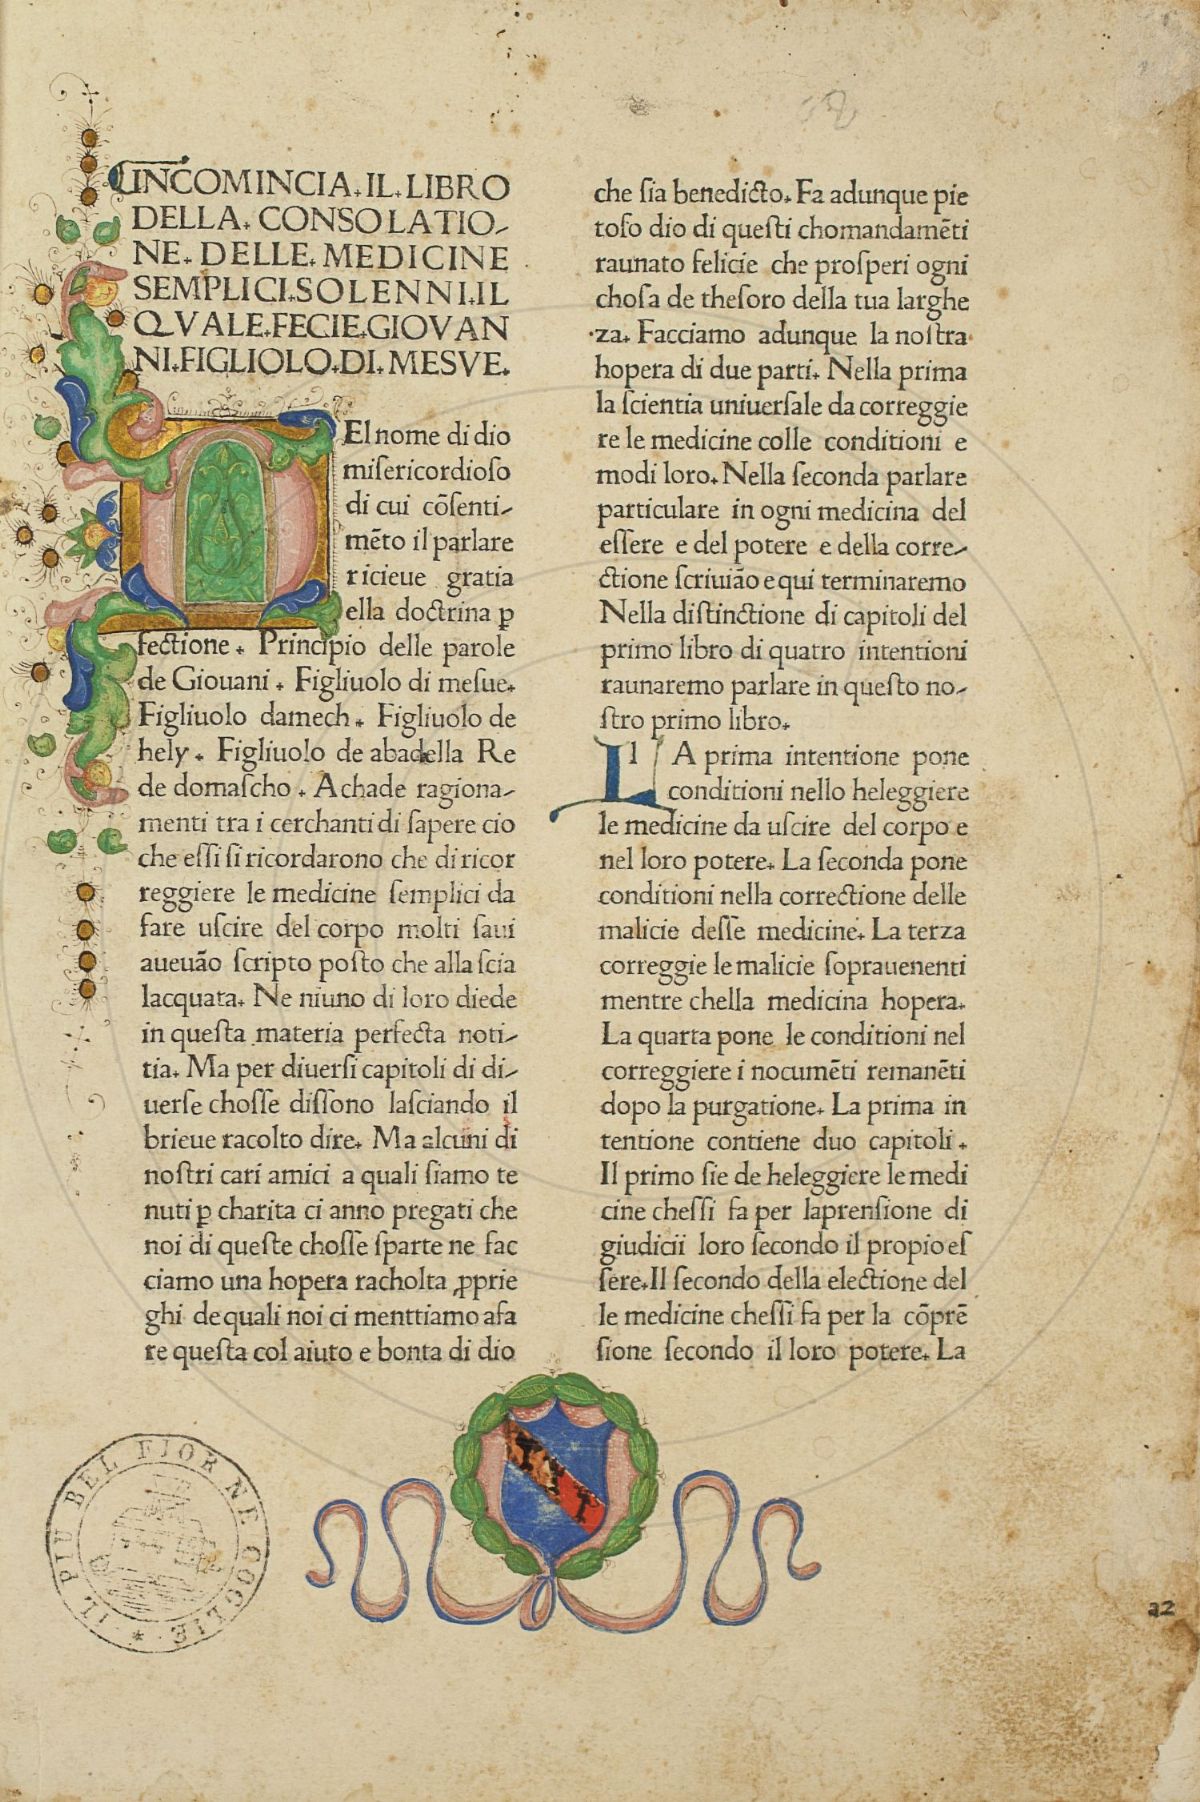 INCOMINCIA.IL.LIBRO
DELLA. CONSOLATIO-
NE. DELLE. MEDICINE
SEMPLICI.SOLENNI.IL
QVALE.FECIE.GIOVAN
NI.FIGLIOLO.DI.MESVE.
El nome di dio
miſericordioſo
di cui cõſenti-
mẽto il parlare
ricieue gratia
ella doctrina ꝑ
fectione. Principio delle parole
de Giouani. Figliuolo di meſue.
Figliuolo damech. Figliuolo de
hely. Figliuolo de abadella Re
de domaſcho. Achade ragiona-
menti tra i cerchanti di ſapere cio
che eſſi ſi ricordarono che di ricor
reggiere le medicine ſemplici da
fare uſcire del corpo molti ſaui
aueuão ſcripto poſto che alla ſcia
lacquata. Ne niuno di loro diede
in queſta materia perfecta noti-
tia. Ma per diuerſi capitoli di di-
uerſe choſſe diſſono laſciando il
brieue racolto dire. Ma alcuni di
noſtri cari amici a quali ſiamo te
nuti ꝑ charita ci anno pregati che
noi di queſte choſſe ſparte ne fac
ciamo una hopera racholta ꝓprie
ghi de quali noi ci menttiamo afa
re queſta col aiuto e bonta di dio
che ſia benedicto. Fa adunque pie
toſo dio di queſti chomandamẽti
raunato felicie che proſperi ogni
choſa de theſoro della tua larghe
za. Facciamo adunque la noſtra
hopera di due parti. Nella prima
la ſcientia uniuerſale da correggie
re le medicine colle conditioni e
modi loro. Nella ſeconda parlare
particulare in ogni medicina del
eſſere e del potere e della corre-
ctione ſcriuião e qui terminaremo
Nella diſtinctione di capitoli del
primo libro di quatro intentioni
raunaremo parlare in queſto no-
ſtro primo libro.
L A prima intentione pone
conditioni nello heleggiere
le medicine da uſcire del corpo e
nel loro potere. La ſeconda pone
conditioni nella correctione delle
malicie deſſe medicine. La terza
correggie le malicie ſoprauenenti
mentre chella medicina hopera.
La quarta pone le conditioni nel
correggiere i nocumẽti remanẽti
dopo la purgatione. La prima in
tentione contiene duo capitoli.
Il primo ſie de heleggiere le medi
cine cheſſi fa per laprenſione di
giudicii loro ſecondo il propio eſ
ſere. Il ſecondo della electione del
le medicine cheſſi fa per la cõprẽ
ſione ſecondo il loro potere. La
IL PIU BEL FIOR NE COGLIE
a2